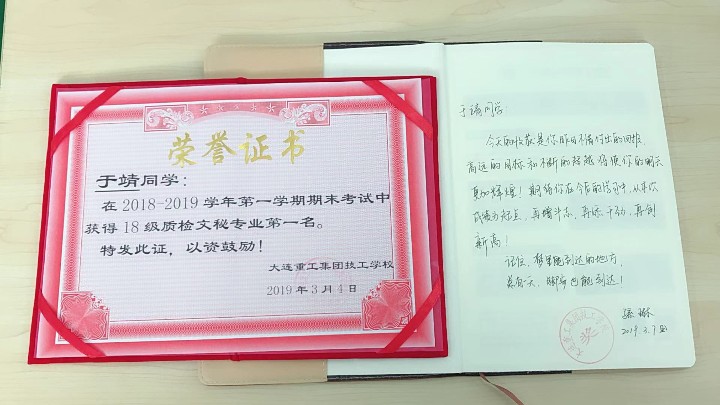 荣誉证书
于靖同学：
在2018-2019学年第一学期期末考试中
获得18级质检文秘专业第一名。
特发此证，以资鼓励！
大连重工集团技工学校
2019年3月4日
于靖同学：
今天的收获是你昨日不懈付出的回报，
高远的目标和不断的超越将使你的明天
更加辉煌！期待你在今后的学习中，以本次
成绩为起点，再增斗志，再添干劲，再创
新高！
记住，梦里能到达的地方，
总有一天，脚步也能到达！
2019.3.7
奖